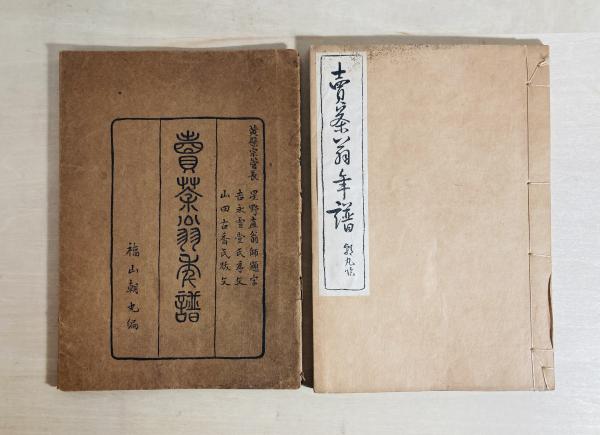 黄檗宗管長 星野直翁師題字
吉永雪堂氏序文
山田古香氏跋文
賣茶翁年譜
福山朝丸編
賣茶翁年譜